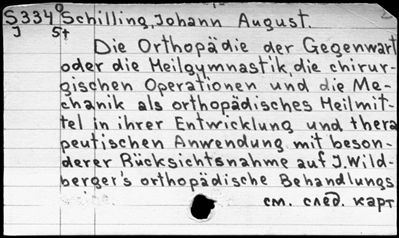 S334⁰ Schilling, Johann August.
J 5t
Die Orthopädie der Gegenwart
oder die Heilgymnastik, die chirur-
gischen Operationen und die Me-
chanik als orthopädisches Heilmit-
tel in ihrer Entwicklung und thera
peutischen Anwendung mit beson-
derer Rücksichtsnahme auf J. Wild-
berger's orthopädische Behandlungs
см. след. карт